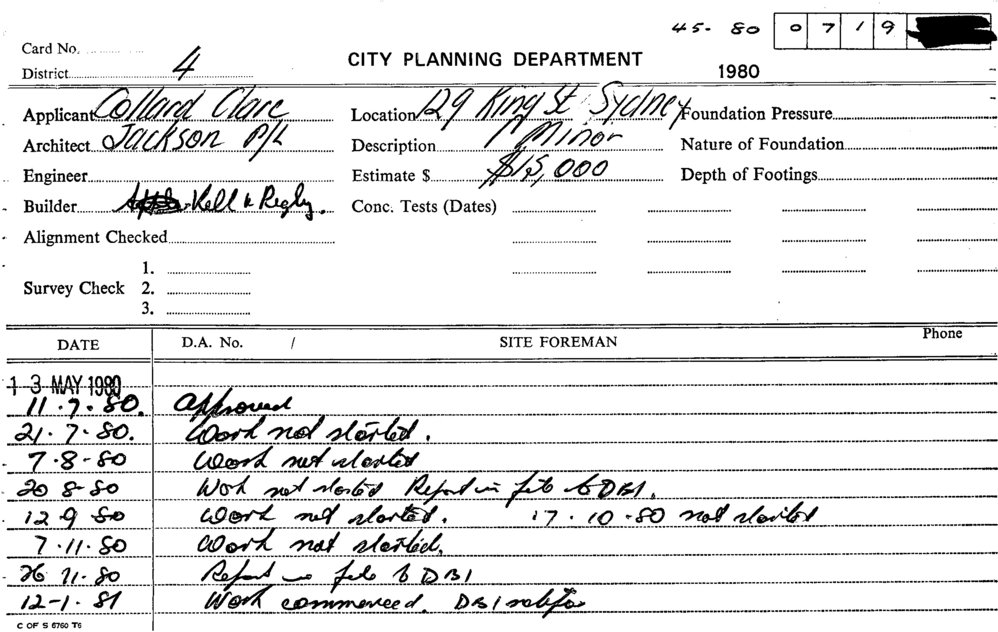 45- 80 0 7 1 9
Card No.
CITY PLANNING DEPARTMENT
District 4
1980
Applicant Collard Clarc Location 129 King St Sydney Foundation Pressure
Architect Jackson P/L Description Minor Nature of Foundation
Engineer Estimate $ $15,000 Depth of Footings
Builder Kell & Rigby. Conc. Tests (Dates)
Alignment Checked
1.
Survey Check 2.
3.
DATE D.A. No. / SITE FOREMAN Phone
13 MAY 1980
11.7.80. Approved
21.7.80. Work not started.
7.8-80 Work not started
20 8-80 Work not started Report in file to DBI.
12.9 80 Work not started. 17.10.80 not started
7.11.80 Work not started.
26 11.80 Report in file to DBI
12-1.81 Work commenced. DBI
C OF S 6760 T6